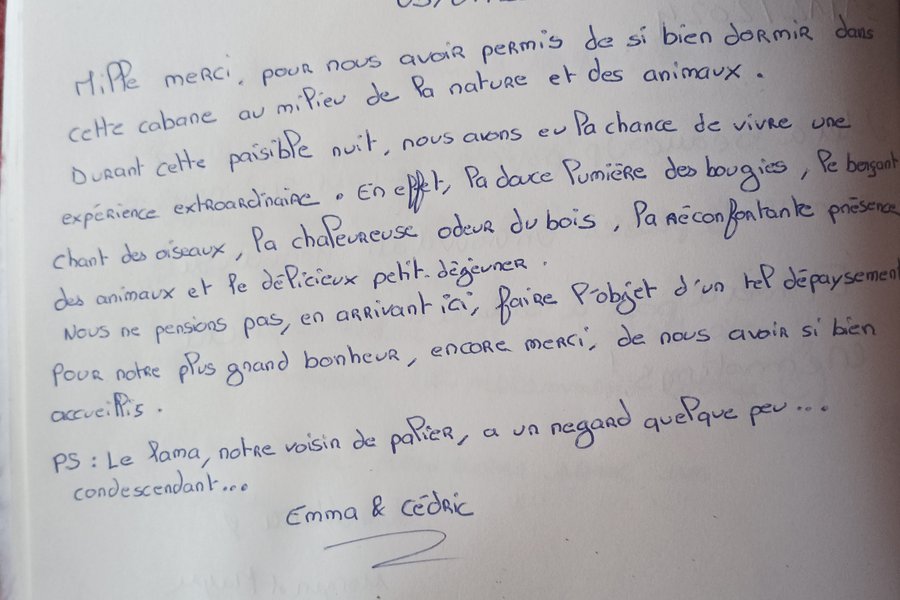 Mille merci, pour nous avoir permis de si bien dormir dans
cette cabane au milieu de la nature et des animaux.
Durant cette paisible nuit, nous avons eu la chance de vivre une
expérience extroardinaire. En effet, la douce lumière des bougies, le berçant
chant des oiseaux, la chaleureuse odeur du bois, la réconfortante présence
des animaux et le délicieux petit-déjeuner.
Nous ne pensions pas, en arrivant ici, faire l'objet d'un tel dépaysement
Pour notre plus grand bonheur, encore merci, de nous avoir si bien
accueillis.
PS : Le lama, notre voisin de palier, a un regard quelque peu ...
condescendant...
Emma & Cédric